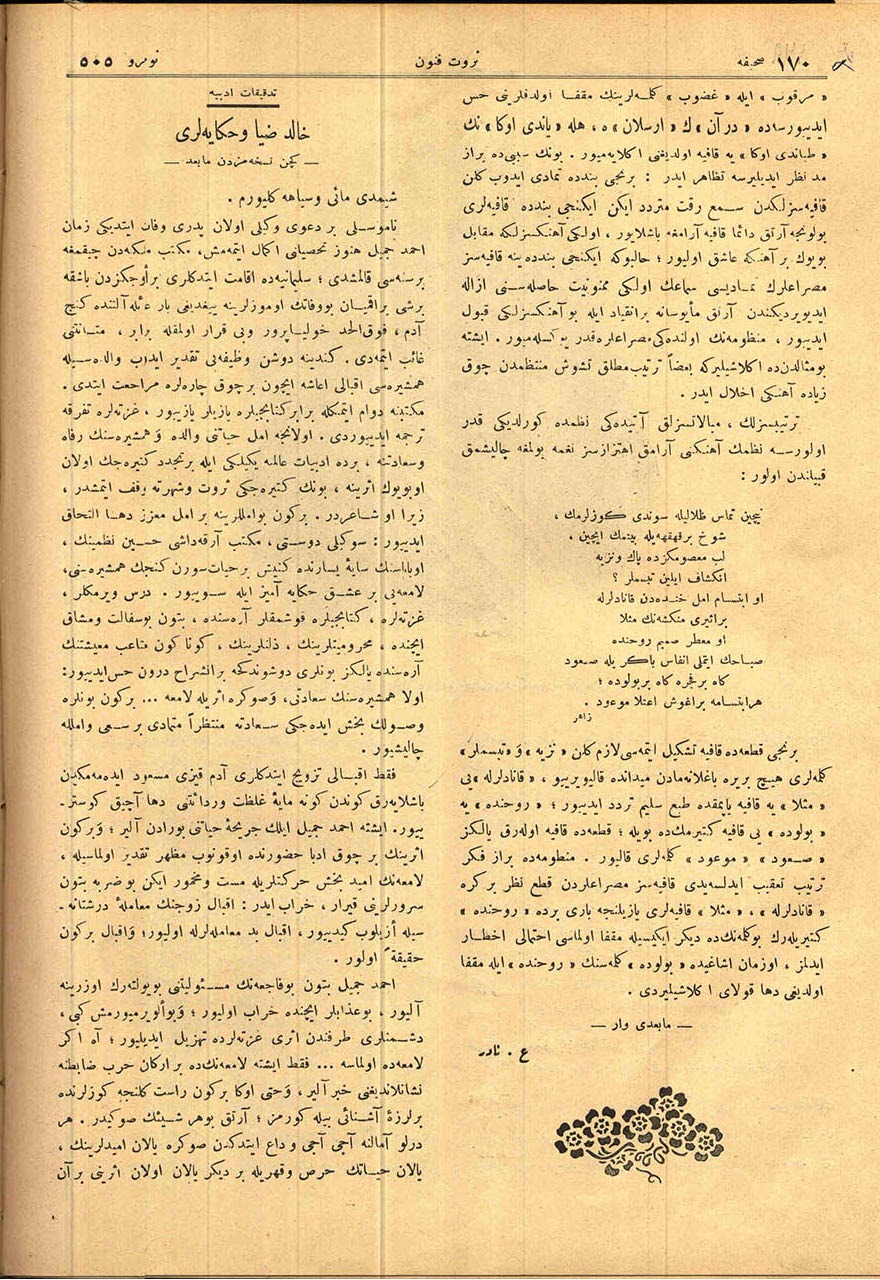 صحیفه ١٧٠
ثروت فنون
نومرو ٥٠٥
« مرقوب » ایله « غضوب » كلمه‌لرینك مقفا اولدقلرینی حس
ایدییورسه‌ده « در آن » ك « ارسلان » ه ، هله « باندی اوكا » نك
« طیاندی اوكا » یه قافیه اولدیغی آكلایه‌میور . بونك سببی‌ده براز
مد نظر ایدیلیرسه تظاهر ایدر : برنجی بندده تمادی ایدوب كلن
قافیه‌سزلكدن سمع رقت متردد ایكن ایكنجی بندده قافیه‌لری
بولونجه آرتق دائما قافیه آرامغه باشلایور ، اولكی آهنكسزلكه مقابل
بویوك بر آهنكه عاشق اولیور ؛ حالبوكه ایكنجی بندده ینه قافیه‌سز
مصراعلرك تمادیسی سماعك اولكی ممنونیت حاصله‌سنی ازاله
ایدیویردیكندن آرتق مأیوسانه بر انقیاد ایله بو آهنكسزلكی قبول
ایدییور ، منظومه‌نك اولنده‌كی مصراعلره‌قدر یوكسله‌میور . ایشته
بو مثالدن‌ده اكلاشیلیركه بعضاً ترتیب مطلق تشوش منتظمدن چوق
زیاده آهنكی اخلال ایدر .
ترتیبسزلك ، مبالاتسزلق آتیده‌كی نظمده كورلدیكی قدر
اولورسه نظمك آهنكنی آرامق اهتزازسز نغمه بولمغه چالیشمق
قبیلندن اولور :
نیچین تماس ظلالیله سوندی كوزلرمك ،
شوخ بر قهقهه‌یله بیتمك ایچین ،
لب معصومكزده پاك ونزیه
انكشاف ایلین تبسملر ؟
او ابتسام امل خنده‌دن قانادلرله
بر اثیری منكشه‌نك مثلا
او معطر صمیم روحنده
صباحك ایتملی انفاس باكریله صعود
كاه بر فجره كاه بر بولوده ؛
هر ابتسامه بر آغوش اعتلا موعود .
زاهر
برنجی قطعه‌ده قافیه تشكیل ایتمه‌سی لازم كلن « نزیه » و « تبسملر »
كله‌لری هیچ بریره باغلانه‌مادن میدانده قالیویرییو ، « قانادلرله » یی
« مثلا » یه قافیه یاپمقده طبع سلیم تردد ایدییور ؛ « روحنده » یه
« بولوده » یی قافیه كتیرمك‌ده بویله ؛ قطعه‌ده قافیه اوله‌رق یالكز
« صعود » « موعود » كله‌لری قالیور . منظومه‌ده براز فكر
ترتیب تعقیب ایدلسه‌یدی قافیه‌سز مصراعلردن قطع نظر بر كره
« قانادلرله » ، « مثلا » قافیه‌لری یازیلنجه باری برده « روحنده »
كتیریله‌رك بو كله‌نك‌ده دیكر ایكیسیله مقفا اولماسی احتمالی اخطار
ایدلمز ، اوزمان اشاغیده « بولوده » كله‌سنك « روحنده » ایله مقفا
اولدیغی دها قولای اكلاشیلیردی .
— مابعدی وار —
ع . نادر
تدقیقات ادبیه
خالد ضیا وحكایه‌لری
— كچن نسخه‌مزدن مابعد —
شیمدی مائی وسیاهه كلیورم .
ناموسلی بر دعوی وكیلی اولان پدری وفات ایتدیكی زمان
احمد جمیل هنوز تحصیلنی اكمال ایتمه‌مش، مكتب ملكیه‌دن چیقمغه
بر سنه‌سی قالمشدی ؛ سلیمانیه‌ده اقامت ایتدكلری بر اوجكزدن باشقه
برشی براقمیان بو وفاتك اوموزلرینه ییغدیغی بار عائله آلتنده كنج
آدم ، فوق الحد خولیاپرور وبی قرار اولمقله برابر ، متانتنی
غائب ایتمه‌دی . كندینه دوشن وظیفه‌یی تقدیر ایدرب والده‌سیله
همشیره‌سی اقبالی اعاشه ایچون بر چوق چاره‌لره مراجعت ایتدی .
مكتبنه دوام ایتمكله برابر كتابجیلره یازیلر یازییور ، غزته‌لره تفرقه
ترجمه ایدییوردی . اولانجه امل حیاتی والده و همشیره‌سنك رفاه
وسعادتنه ، برده ادبیات عالمنه یكیلكی ایله بر تجدد كتیره‌جك اولان
او بویوك اثرینه ، بونك كتیره‌جكی ثروت وشهرته وقف ایتمشدر ،
زیرا او شاعردر . بركون بو امللرینه بر امل معزز دها التحاق
ایدییور : سوكیلی دوستی ، مكتب آرقه‌داشی حسین نظمینك ،
او باباسنك سایهٔ یسارنده كنیش بر حیات سورن كنجك همشیره‌سنی،
لامعه‌یی بر عشق حكایه آمیز ایله سوییور . درس ویرمكلر ،
غزته‌لره ، كتابجیلره قوشمقلر آره‌سنده ، بتون بو سفالت ومشاق
ایچنده ، محرومیتلرینك ، ذلتلرینك ، كوناكون متاعب معیشتنك
آره‌سنده یالكز بونلری دوشوندكجه بر انشراح درون حس ایدییور:
اولا همشیره‌سنك سعادتی، وصوكره اثریله لامعه ... بركون بونلره
وصولك بخش ایده‌جكی سعادته منتظراً متمادی بر سعی واملله
چالیشیور .
فقط اقبالی تزویج ایتدكلری آدم قیزی مسعود ایده‌مه‌مكدن
باشلایه‌رق كوندن كونه مایهٔ غلظت وردائتنی دها آچیق كوستر-
ییور. ایشته احمد جمیل ایلك جریحهٔ حیاتنی بورادن آلیر ؛ و بركون
اثرینك بر چوق ادبا حضورنده اوقونوب مظهر تقدیر اولماسیله ،
لامعه‌نك امید بخش حركتلریله مست ومخمور ایكن بو ضربه بتون
سرورلرینی قیرار ، خراب ایدر : اقبال زوجنك معاملهٔ درشتانه-
سیله أزیلوب كیدییور ، اقبال بد معامله‌لرله اولیور؛ واقبال بركون
حقیقةً اولور .
احمد جمیل بتون بو فاجعه‌نك مسئولیتنی بویولته‌رك اوزرینه
آلیور ، بو عذابلر ایچنده خراب اولیور ؛ و بو ألویرمیورمش كبی ،
دشمنلری طرفندن اثری غزته‌لرده تهزیل ایدیلیور ؛ آه اكر
لامعه‌ده اولماسه ... فقط ایشته لامعه‌نك‌ده بر اركان حرب ضابطنه
نشانلاندیغنی خبر آلیر ، و حتی اوكا بركون راست كلنجه كوزلرنده
بر لرزهٔ آشنائی بیله كورمز ؛ آرتق بو هر شیئك صوكیدر . هر
درلو آمالنه آجی آجی وداع ایتدكدن صوكره یالان امیدلرینك ،
یالان حیاتك حرص وقهریله بر دیكر یالان اولان اثرینی بر آن